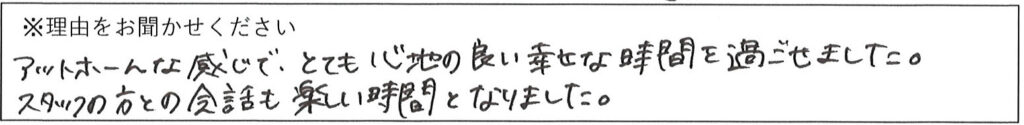 ※理由をお聞かせください
アットホームな感じで、とても心地の良い幸せな時間を過ごせました。
スタッフの方との会話も楽しい時間となりました。